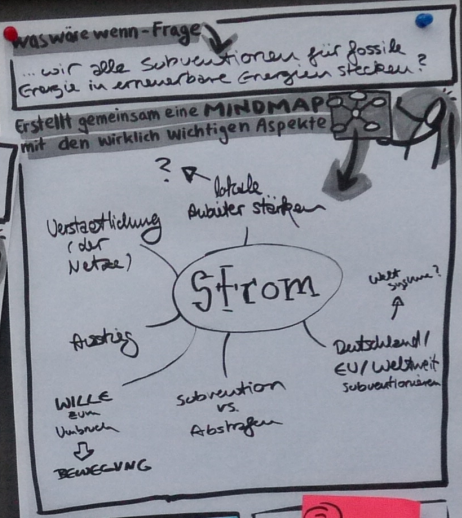 was wäre wenn-Frage
... wir alle Subventionen für fossile
Energie in erneuerbare Energien stecken?
Erstellt gemeinsam eine MINDMAP
mit den wirklich wichtigen Aspekten
?
lokale
Anbieter stärken
Verstaatlichung
(der
Netze)
Strom
Welt
Ausstieg
Deutschland/
EU/Weltweit
subventionieren
WILLE
zum
Umbruch
BEWEGUNG
Subvention
vs.
Abstrafen